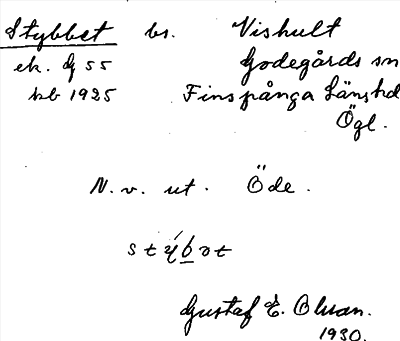 Stybbet bs. Vishult
ek. Bj 55 Godegårds sn
kb 1925 Finspånga Länshd
Ögl.
N.v. ut. Öde.
stýbət
Gustaf E. Olsson.
1930.